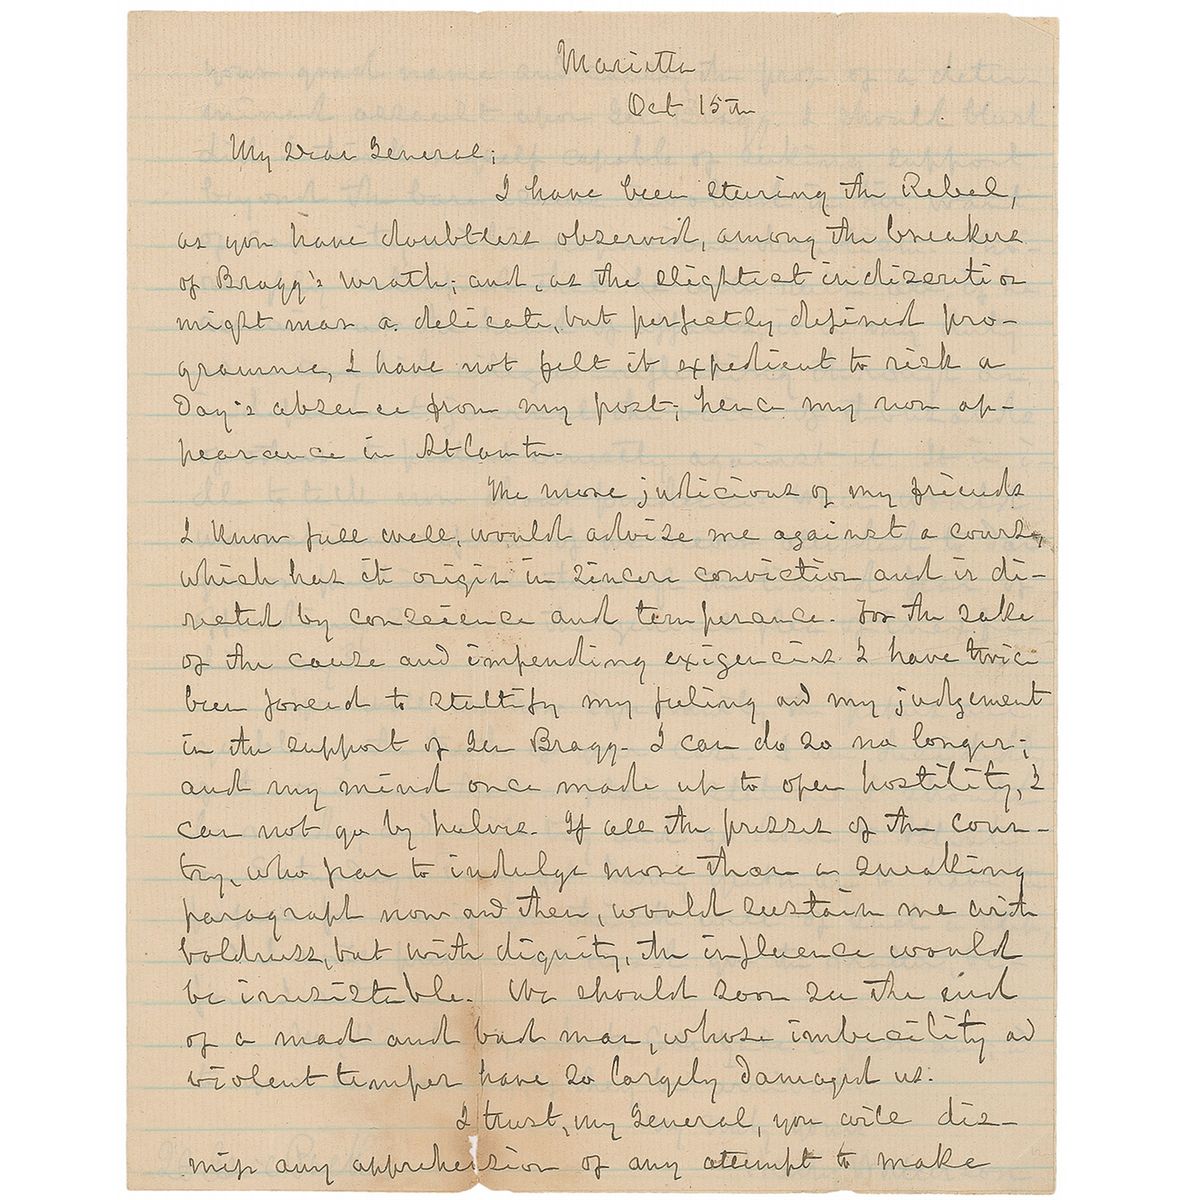 Marietta
Oct 15th
My Dear General;
I have been steering the Rebel,
as you have doubtless observed, among the breakers
of Bragg's wrath; and, as the slightest indiscretion
might mar a delicate, but perfectly defined pro-
gramme, I have not felt it expedient to risk a
day's absence from my post; hence my non ap-
pearance in Atlanta.
The more judicious of my friends
I know full well, would advise me against a course,
which has its origin in sincere conviction and is di-
rected by conscience and temperance. For the sake
of the cause and impending exigencies I have twice
been forced to stultify my feeling and my judgement
in the support of Gen Bragg. I can do so no longer;
and my mind once made up to open hostility, I
can not go by halves. If all the presses of the coun-
try, who fear to indulge more than a snarling
paragraph now and then, would sustain me with
boldness, but with dignity, the influence would
be irresistable. We should soon see the end
of a mad and bad man, whose imbecility and
violent temper have so largely damaged us.
I trust, my General, you will dis-
miss any apprehension of any attempt to make